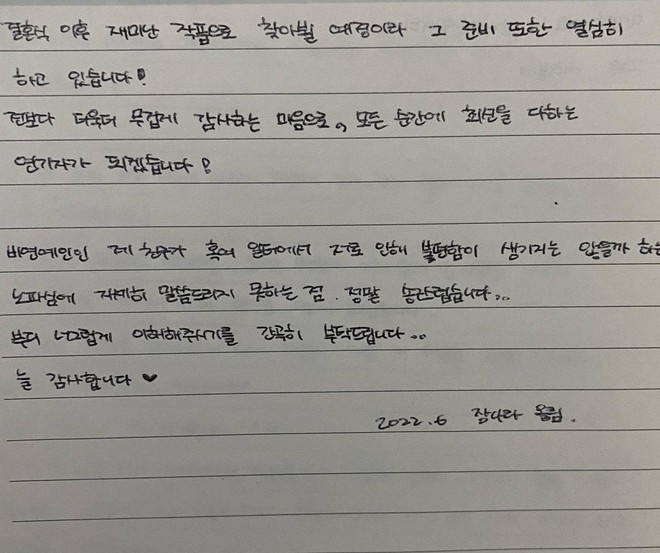 결혼식 이후 재미난 작품으로 찾아뵐 예정이라 그 준비 또한 열심히
하고 있습니다!
전보다 더욱더 무겁게 감사하는 마음으로, 모든 순간에 최선을 다하는
연기자가 되겠습니다!
비연예인인 제 친구가 혹여 일터에서 저로 인해 불편함이 생기지는 않을까 하는
노파심에 자세히 말씀드리지 못하는 점. 정말 송구스럽습니다..
부디 너그럽게 이해해주시기를 간곡히 부탁드립니다..
늘 감사합니다 ♥
2022.6 장나라 올림.